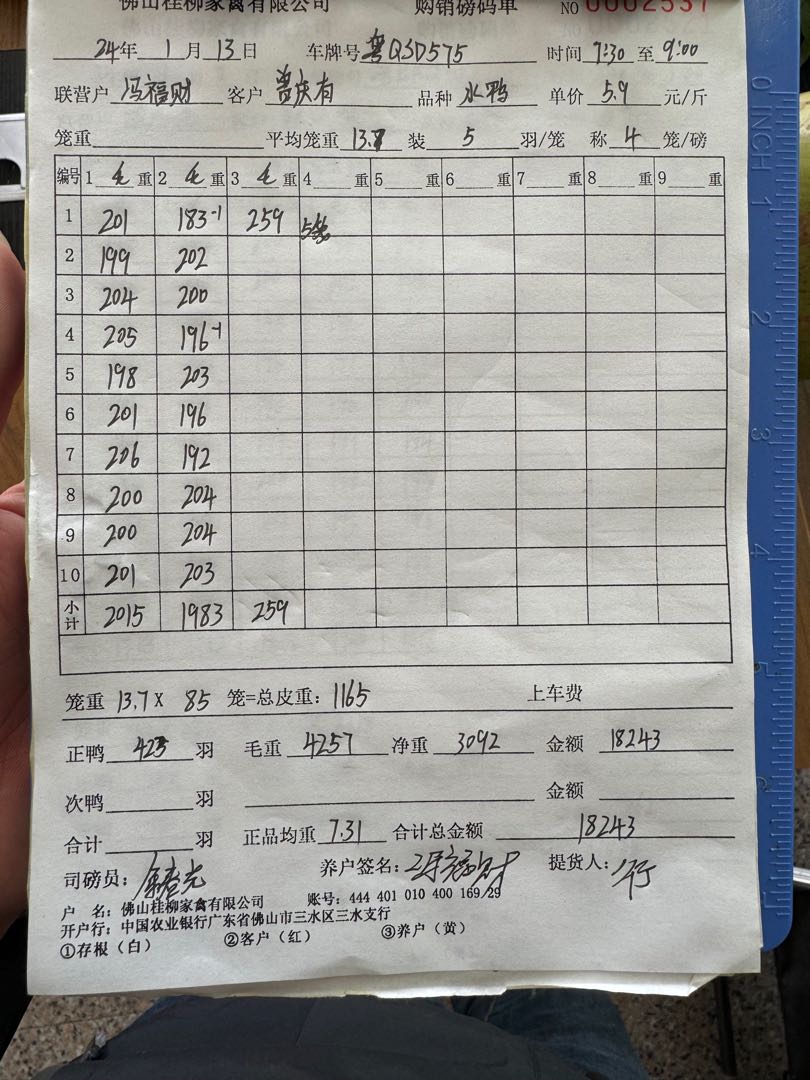 佛山桂柳家禽有限公司 购销磅码单 NO 0002537
24年 1月 13日 车牌号 粤QJD575 时间 7:30 至 9:00
联营户 冯福财 客户 曾庆有 品种 水鸭 单价 5.9 元/斤
笼重 平均笼重 13.7 装 5 羽/笼 称 4 笼/磅
编号 1 毛 重 2 毛 重 3 毛 重 4 重 5 重 6 重 7 重 8 重 9 重
1 201 183-1 259 5笼
2 199 202
3 204 200
4 205 196-1
5 198 203
6 201 196
7 206 192
8 200 204
9 200 204
10 201 203
小计 2015 1983 259
笼重 13.7 X 85 笼=总皮重: 1165 上车费
正鸭 423 羽 毛重 4257 净重 3092 金额 18243
次鸭 羽 金额
合计 羽 正品均重 7.31 合计总金额 18243
司磅员: 养户签名: 冯福财 提货人:
户 名: 佛山桂柳家禽有限公司 账号: 444 401 010 400 169 29
开户行: 中国农业银行广东省佛山市三水区三水支行
①存根(白) ②客户(红) ③养户(黄)
0 INCH 1
2
3
4
5
6